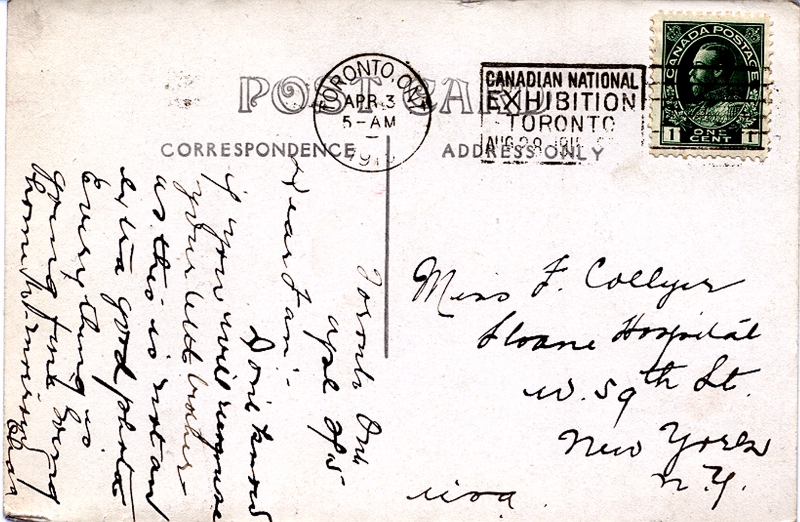 POST CARD
CORRESPONDENCE
ADDRESS ONLY
TORONTO, ONT
APR 3
5-AM
CANADIAN NATIONAL
EXHIBITION
TORONTO
AUG 28
CANADA POSTAGE
1 ONE 1
CENT
Toronto Ont
Dear Fan:-
Don't know
if you will recognize
your little brother
as this is not an
extra good photo
Everything is
going fine being
home
Miss F. Collyer
Sloane Hospital
W. 59th St.
New York
N.Y.
USA